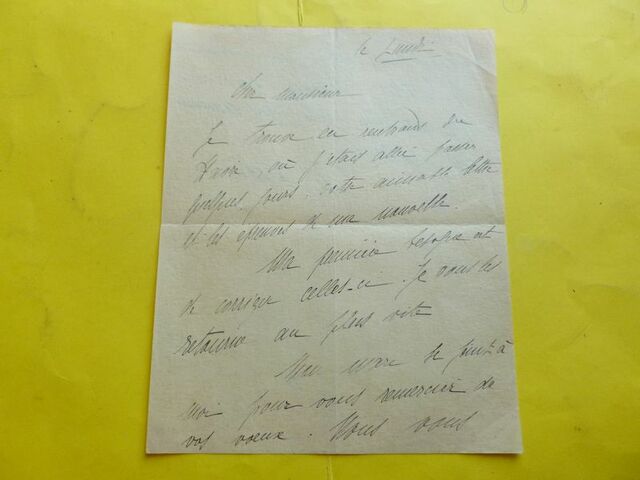 le Lundi
Cher Monsieur
Je trouve en rentrant de
où j'étais allée passer
quelques jours votre aimable lettre
et les épreuves de ma nouvelle.
Ma première besogne est
de corriger celles-ci. Je vous les
retourne au plus vite
Mon mari se joint à
moi pour vous remercier de
vos voeux. Nous vous